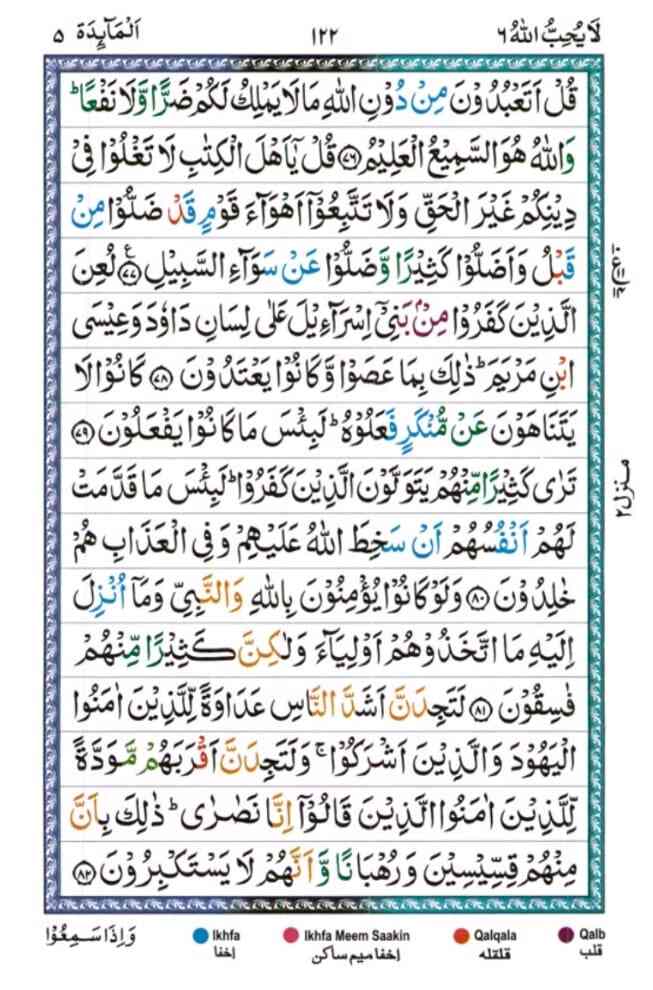 لَا يُحِبُّ اللّٰهُ ٦ ١٢٢ اَلْمَآئِدَة ٥
قُلْ اَتَعْبُدُوْنَ مِنْ دُوْنِ اللّٰهِ مَا لَا يَمْلِكُ لَكُمْ ضَرًّا وَّلَا نَفْعًا ؕ
وَاللّٰهُ هُوَ السَّمِيْعُ الْعَلِيْمُ ﴿٧٦﴾ قُلْ يٰۤاَهْلَ الْكِتٰبِ لَا تَغْلُوْا فِيْ
دِيْنِكُمْ غَيْرَ الْحَقِّ وَلَا تَتَّبِعُوْۤا اَهْوَآءَ قَوْمٍ قَدْ ضَلُّوْا مِنْ
قَبْلُ وَاَضَلُّوْا كَثِيْرًا وَّضَلُّوْا عَنْ سَوَآءِ السَّبِيْلِ ﴿٧٧﴾ ع لُعِنَ
الَّذِيْنَ كَفَرُوْا مِنْۢ بَنِيْۤ اِسْرَآءِيْلَ عَلٰى لِسَانِ دَاوٗدَ وَعِيْسَى
ابْنِ مَرْيَمَ ؕ ذٰلِكَ بِمَا عَصَوْا وَّكَانُوْا يَعْتَدُوْنَ ﴿٧٨﴾ كَانُوْا لَا
يَتَنَاهَوْنَ عَنْ مُّنْكَرٍ فَعَلُوْهُ ؕ لَبِئْسَ مَا كَانُوْا يَفْعَلُوْنَ ﴿٧٩﴾
تَرٰى كَثِيْرًا مِّنْهُمْ يَتَوَلَّوْنَ الَّذِيْنَ كَفَرُوْا ؕ لَبِئْسَ مَا قَدَّمَتْ
لَهُمْ اَنْفُسُهُمْ اَنْ سَخِطَ اللّٰهُ عَلَيْهِمْ وَفِي الْعَذَابِ هُمْ
خٰلِدُوْنَ ﴿٨٠﴾ وَلَوْ كَانُوْا يُؤْمِنُوْنَ بِاللّٰهِ وَالنَّبِيِّ وَمَاۤ اُنْزِلَ
اِلَيْهِ مَا اتَّخَذُوْهُمْ اَوْلِيَآءَ وَلٰكِنَّ كَثِيْرًا مِّنْهُمْ
فٰسِقُوْنَ ﴿٨١﴾ لَتَجِدَنَّ اَشَدَّ النَّاسِ عَدَاوَةً لِّلَّذِيْنَ اٰمَنُوا
الْيَهُوْدَ وَالَّذِيْنَ اَشْرَكُوْا ۚ وَلَتَجِدَنَّ اَقْرَبَهُمْ مَّوَدَّةً
لِّلَّذِيْنَ اٰمَنُوا الَّذِيْنَ قَالُوْۤا اِنَّا نَصٰرٰى ؕ ذٰلِكَ بِاَنَّ
مِنْهُمْ قِسِّيْسِيْنَ وَرُهْبَانًا وَّاَنَّهُمْ لَا يَسْتَكْبِرُوْنَ ﴿٨٢﴾
منزل ٢
وَاِذَا سَمِعُوْا
Ikhfa اخفا
Ikhfa Meem Saakin إخفا ميم ساكن
Qalqala قلقله
Qalb قلب